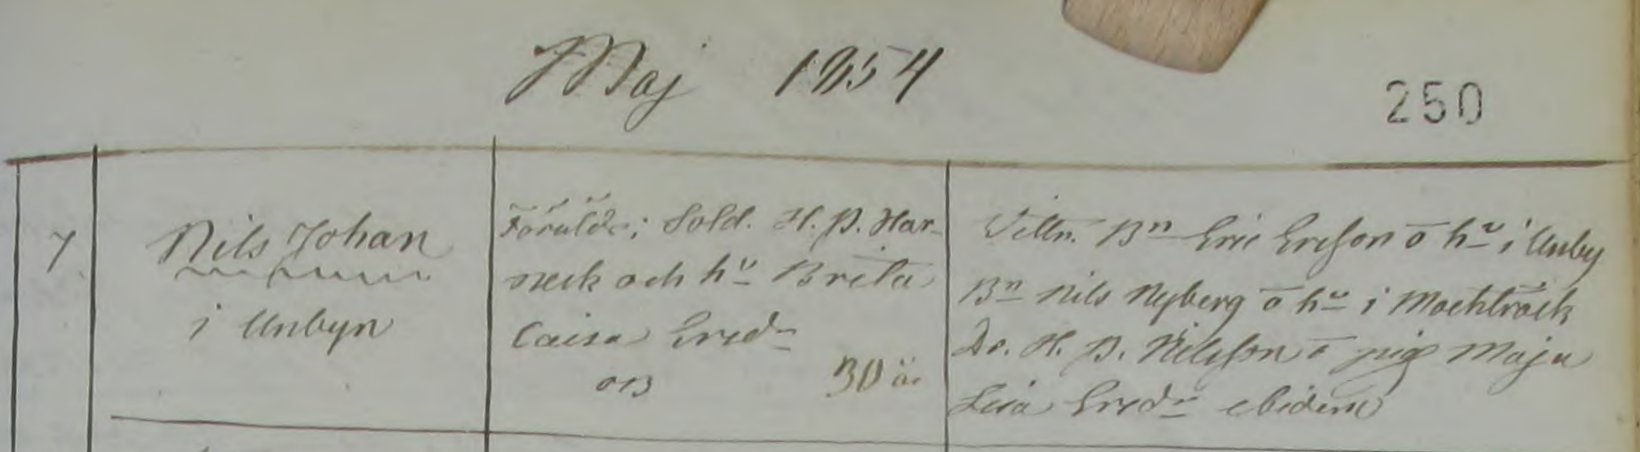 Maj 1854
250
7
Nils Johan
i Unbyn
Föräldr; Sold. H. P. Har-
neck och hu Brita
Caisa Ersdr
30 år
Vittn. Bn Eric Ersson o hu i Unby
Bn Nils Nyberg o hu i Mockträsk
Dr. H. P. Nilsson o pig Maja
Lisa Ersdr ibidem